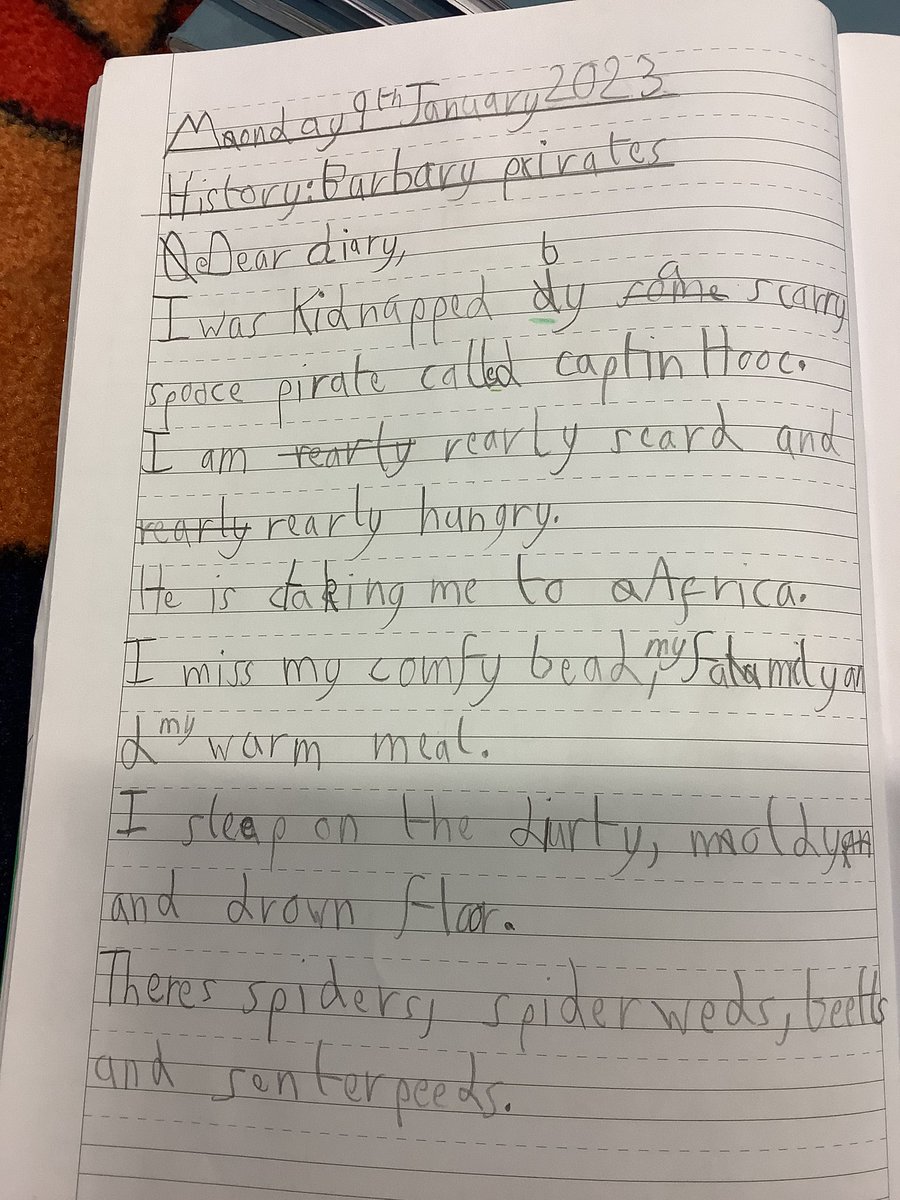 Monday 9th January 2023
History: Barbary pirates
Dear diary,
I was kidnapped by a scarry
spooce pirate called captin Hooc.
I am rearly scard and
rearly hungry.
He is taking me to Africa.
I miss my comfy bead, my family an
d my warm meal.
I sleap on the durty, moldy
and drown floor.
Theres spiders, spiderweds, beetls
and senterpeeds.